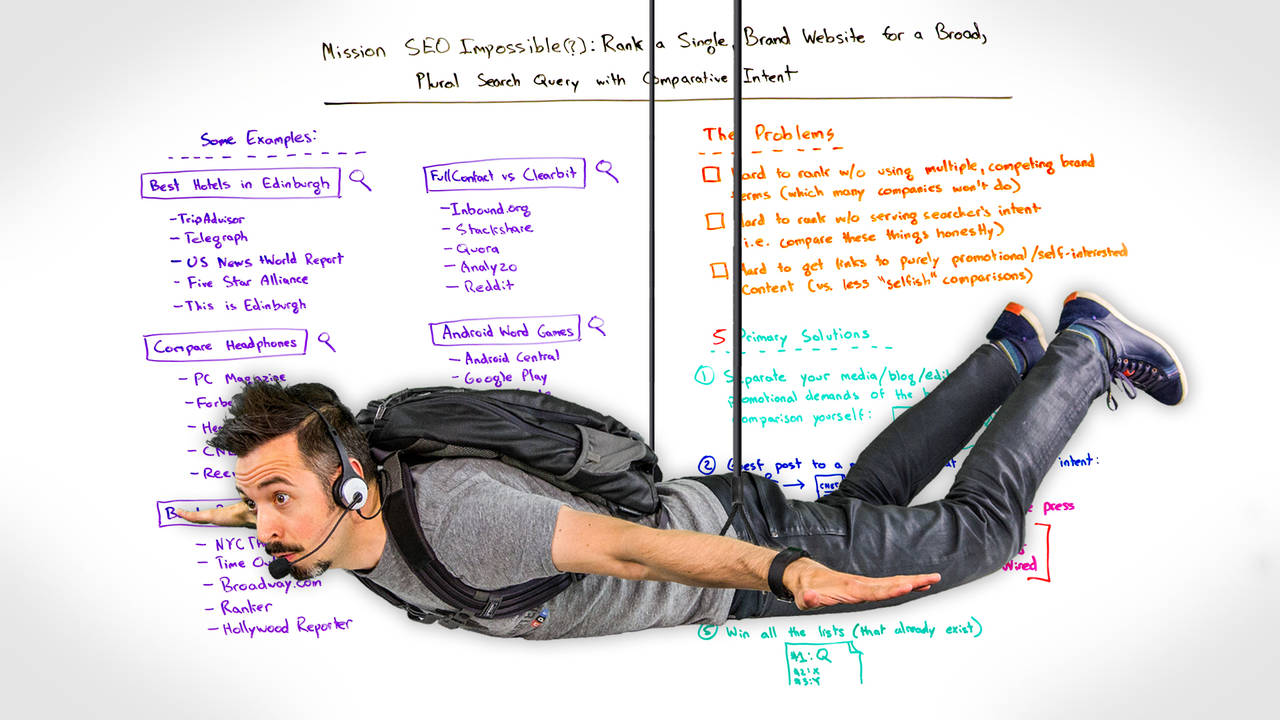 Mission SEO Impossible(?): Rank a Single, Brand Website for a Broad,
Plural Search Query with Comparative Intent
Some Examples:
Best Hotels in Edinburgh
- TripAdvisor
- Telegraph
- US News + World Report
- Five Star Alliance
- This is Edinburgh
Compare Headphones
- PC Magazine
-
- CN
-
- NYC
- Time Out
- Broadway.com
- Ranker
- Hollywood Reporter
FullContact vs Clearbit
- Inbound.org
- Stackshare
- Quora
- Analyzo
- Reddit
Android Word Games
- Android Central
- Google Play
The Problems
Hard to rank w/o using multiple, competing brand
terms (which many companies won't do)
Hard to rank w/o serving searcher's intent
i.e. compare these things honestly)
Hard to get links to purely promotional/self-interested
Content (vs. less "selfish" comparisons)
5 Primary Solutions
① Separate your media/blog/edi
promotional demands of the
comparison yourself:
② Guest post to a that intent:
press
Wired
⑤ Win all the lists (that already exist)
#1: Q
#2: X
#3: Y